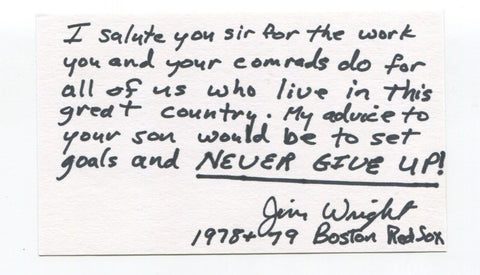 I salute you sir for the work
you and your comrads do for
all of us who live in this
great country. My advice to
your son would be to set
goals and NEVER GIVE UP!
Jim Wright
1978+79 Boston Red Sox